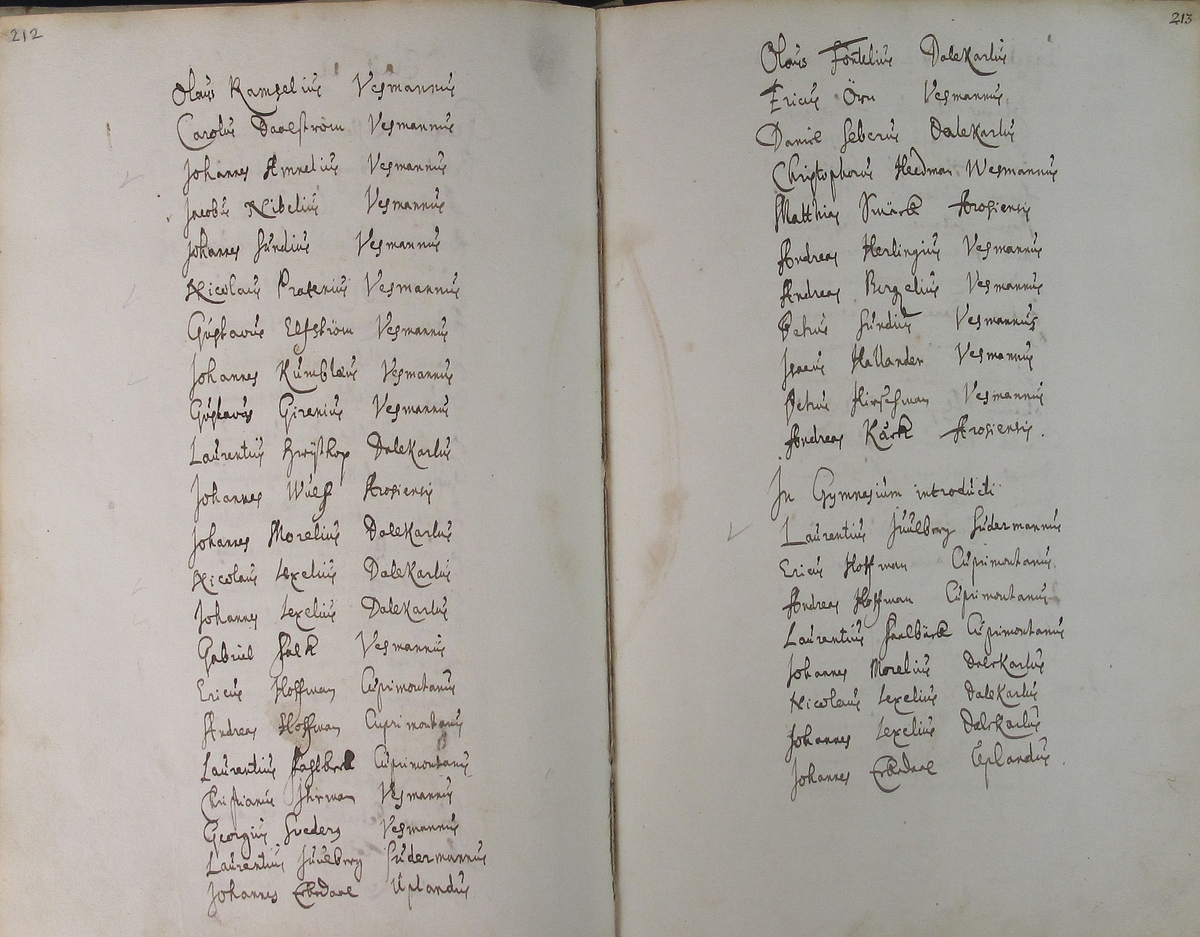 212
Olaus Ramselius Vesmannus
Carolus Daalström Vesmannus
Johannes Amnelius Vesmannus
Jacobus Nibelius Vesmannus
Johannes Sundius Vesmannus
Nicolaus Pratenius Vesmannus
Gustavus Elfström Vesmannus
Johannes Kumblæus Vesmannus
Gustavus Girenius Vesmannus
Laurentius Dalekarlus
Johannes Wulf Arosiensis
Johannes Morelius Dalekarlus
Nicolaus Lexelius Dalekarlus
Johannes Lexelius Dalekarlus
Gabriel Falk Vesmannus
Ericus Hoffman Cuprimontanus
Andreas Hoffman Cuprimontanus
Laurentius Cuprimontanus
Christianus Vesmannus
Georgius Sveders Vesmannus
Laurentius Juulberg Sudermannus
Johannes Uplandus
213
Olaus Fontelius Dalekarlus
Ericus Örn Vesmannus
Daniel Seberus Dalekarlus
Christophorus Heedman Wesmannus
Matthias Smärk Arosiensis
Andreas Herlingius Vesmannus
Andreas Bergelius Vesmannus
Petrus Sundius Vesmannus
Isacus Hallander Vesmannus
Petrus Hirschman Vesmannus
Andreas Kärk Arosiensis.
In Gymnasium introducti
Laurentius Juulberg Sudermannus
Ericus Hoffman Cuprimontanus
Andreas Hoffman Cuprimontanus
Laurentius Cuprimontanus
Johannes Morelius Dalekarlus
Nicolaus Lexelius Dalekarlus
Johannes Lexelius Dalekarlus
Johannes Uplandus.